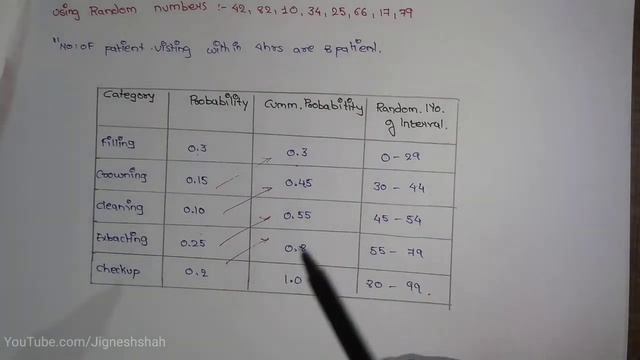 using Random numbers :- 42, 82, 10, 34, 25, 66, 17, 79
"No: OF patient visting with in 4hrs are 8 patient.
Category Probability Cumm. Probability Random. No. of Interval.
Filling 0.3 0.3 0 - 29
Coowning 0.15 0.45 30 - 44
Cleaning 0.10 0.55 45 - 54
Extracting 0.25 0.8 55 - 79
Checkup 0.2 1.0 80 - 99.
YouTube.com/Jigneshshah